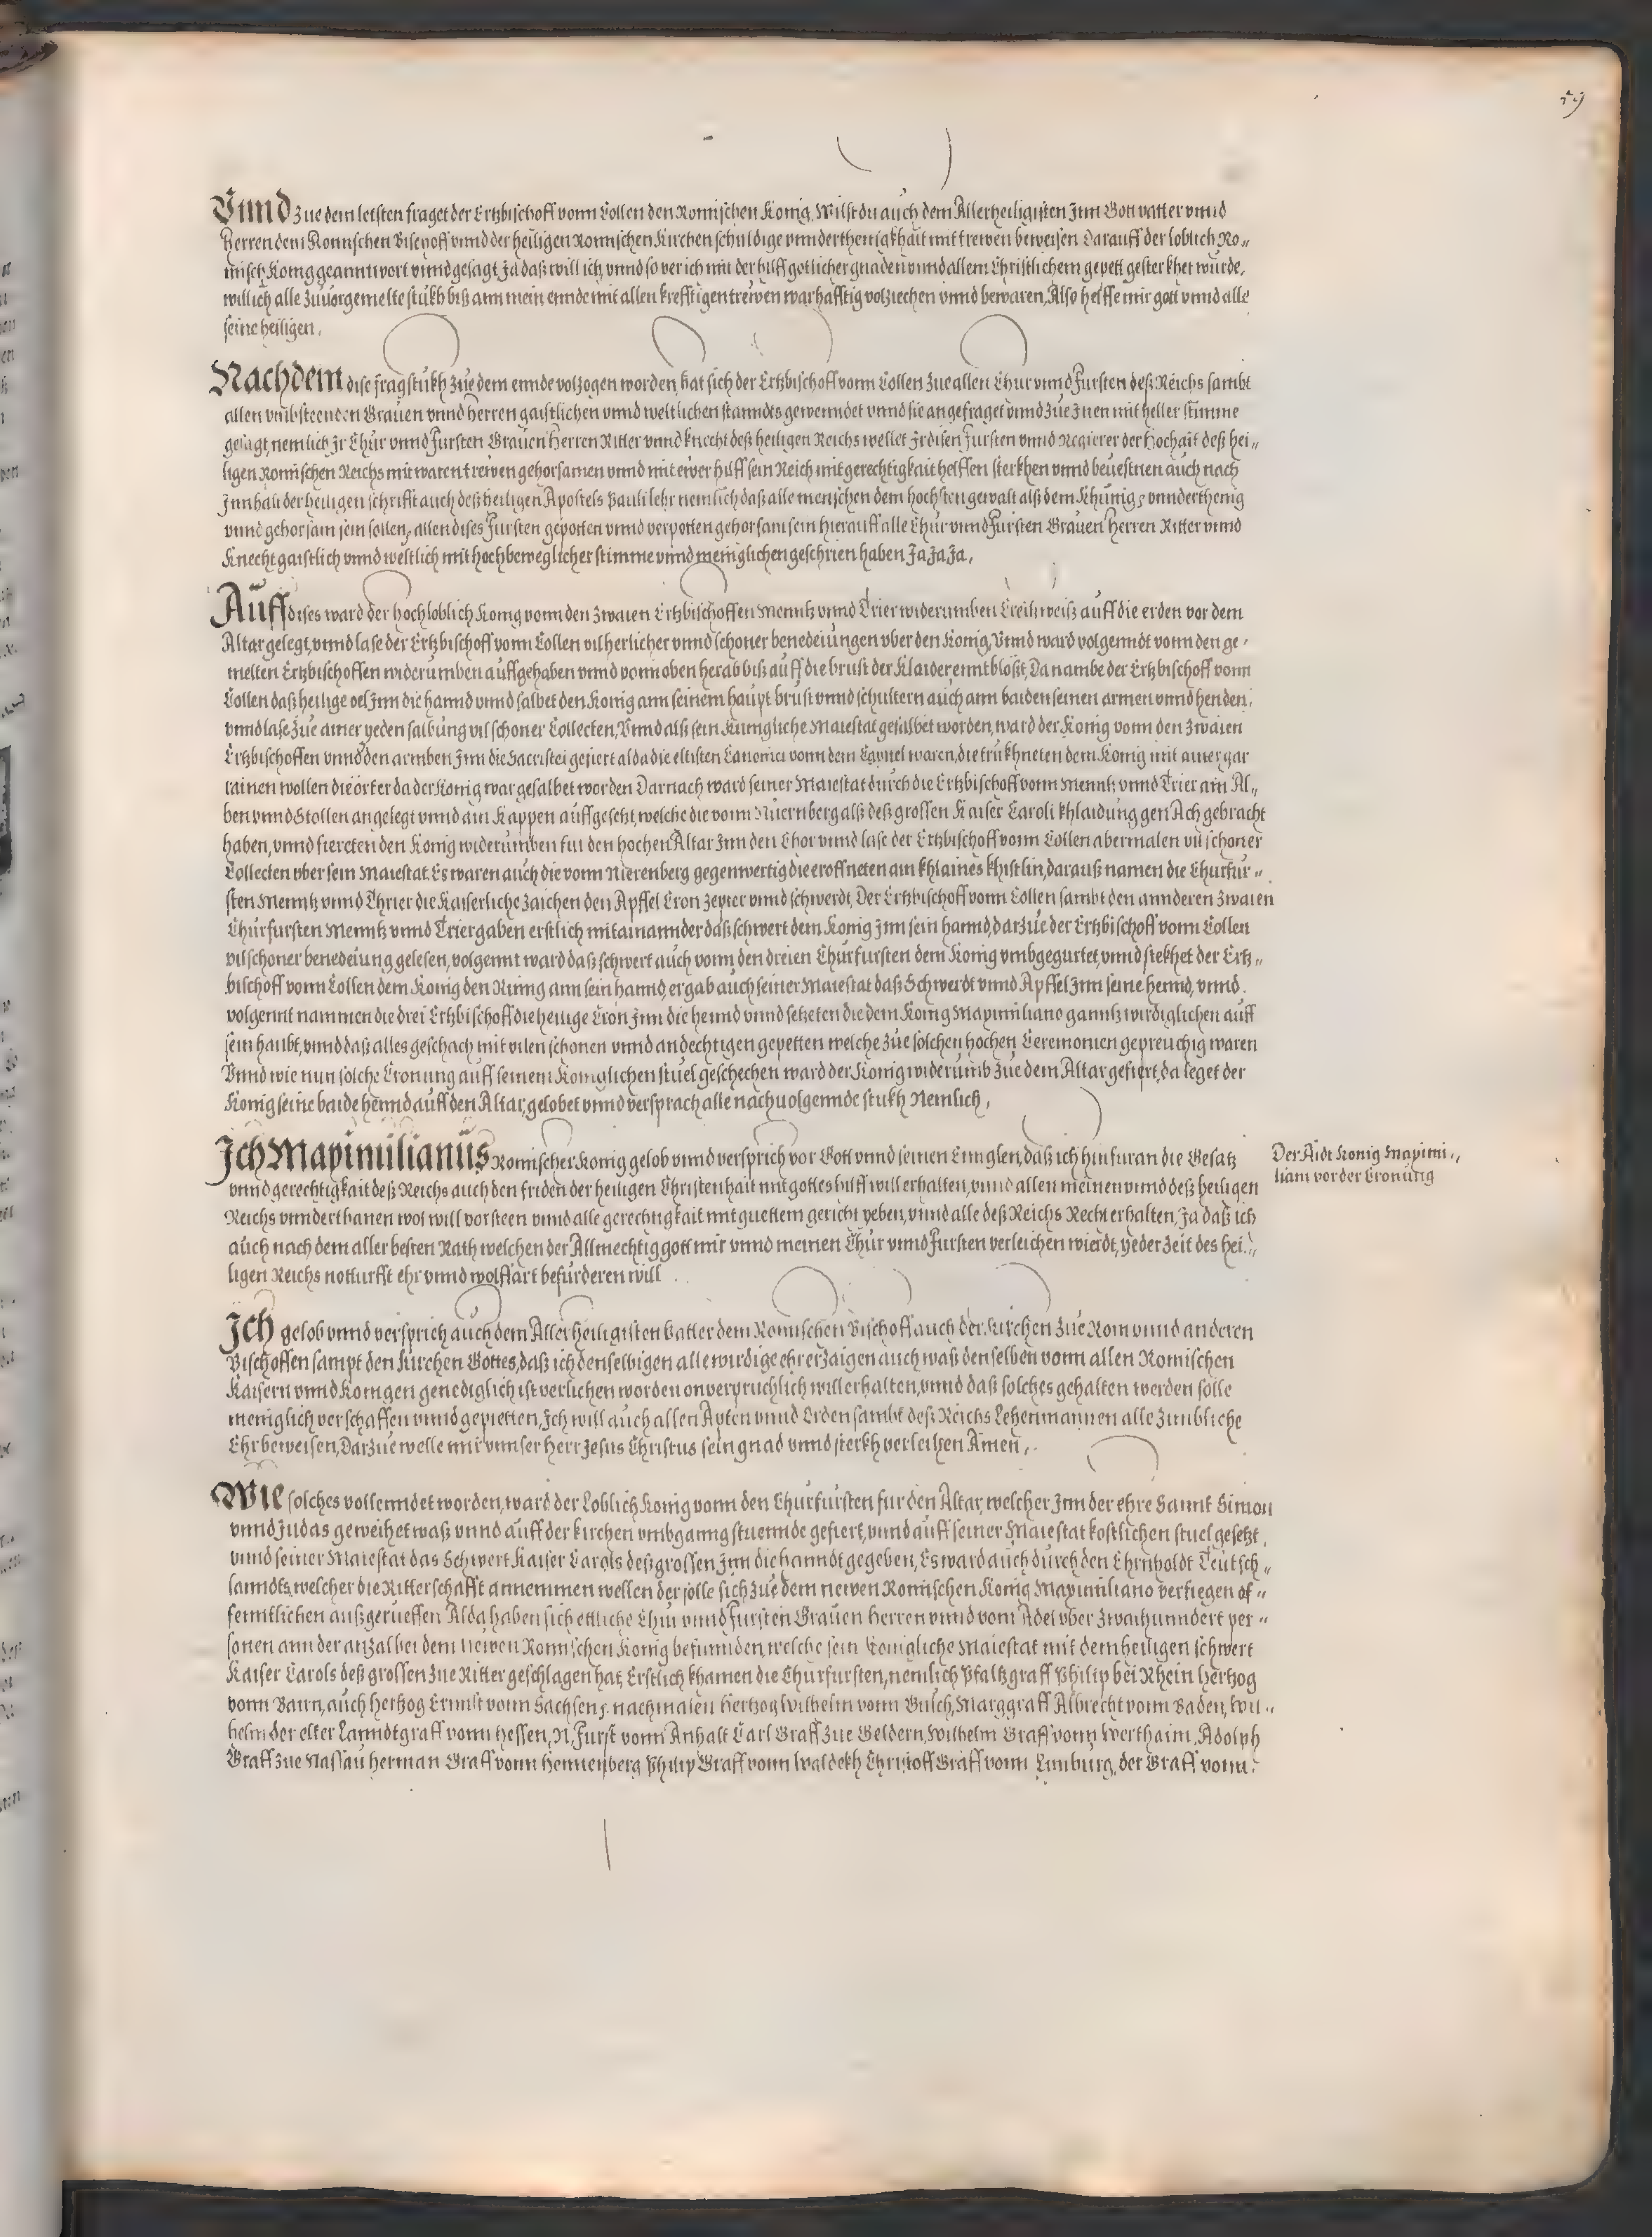 59
Vnnd Zue dem letsten fraget der Ertzbischoff vonn Collen den Romischen Konig, Wilst du auch dem Allerheiligisten Jnn Gott vatter vnnd
Herren dem Romischen Bischoff vnnd der heiligen Romischen Kirchen schuldige vnnderthenigkhait mit trewen beweisen Darauff der loblich Ro„
misch Konig geanntwort vnnd gesagt Ja daß will ich, vnnd so ver ich mit der hilff gotlicher gnaden vnnd allem Christlichem gepett gesterkhet wurde,
will ich alle Zuuorgemelte stukh biß ann mein ennde mit allen krefftigen trewen warhafftig volziechen vnnd bewaren, Also helffe mir gott vnnd alle
seine heiligen.
Nachdem dise fragstukh Zue dem ennde volzogen worden, hat sich der Ertzbischoff vonn Collen Zue allen Chur vnnd Fursten deß Reichs sambt
allen vmbsteenden Grauen vnnd Herren gaistlichen vnnd weltlichen stanndts gewenndet vnnd sie angefraget vnnd Zue Jnen mit heller stimme
gesagt, nemlich Jr Chur vnnd Fursten Grauen Herren Ritter vnnd knecht deß heiligen Reichs wellet Jr disen Fursten vnnd Regierer der Hochait deß hei„
ligen Romischen Reichs mit waren trewen gehorsamen vnnd mit ewer hilff sein Reich mit gerechtigkait helffen sterkhen vnnd beuestnen auch nach
Jnnhalt der heiligen schrifft auch deß heiligen Apostels Pauli lehr nemlich daß alle menschen dem hochsten gewalt alß dem Khunig, vnnderthenig
vnnd gehorsam sein sollen, allen dises Fursten gepotten vnnd verpotten gehorsam sein hierauff alle Chur vnnd Fursten Grauen Herren Ritter vnnd
Knecht gaistlich vnnd weltlich mit hochbeweglicher stimme vnnd meniglichen geschrien haben Ja Ja Ja,
Auff dises ward der hochloblich Konig vonn den Zwaien Ertzbischoffen Menntz vnnd Trier widerumben Creitzweiß auff die erden vor dem
Altar gelegt, vnnd lase der Ertzbischoff vonn Collen vil herlicher vnnd schoner benedeiungen vber den Konig, Vnnd ward volgenndt vonn den ge„
melten Ertzbischoffen widerumben auffgehaben vnnd vonn oben herab biß auff die brust der Klaider enntbloßt, Da nambe der Ertzbischoff vonn
Collen daß heilige oel Jnn die hannd vnnd salbet den Konig ann seinem haupt brust vnnd schultern auch ann baiden seinen armen vnnd henden,
vnnd lase Zue ainer yeden salbung vil schoner Collecten, Vnnd alß sein Kunigliche Maiestat gesalbet worden, ward der Konig vonn den Zwaien
Ertzbischoffen vnnd den armben Jnn die Sacristei gefiert alda die eltisten Canonici vonn dem Capitel waren, die trukhneten dem Konig mit ainer gar
rainen wollen die örter da der Konig war gesalbet worden Darnach ward seiner Maiestat durch die Ertzbischoff vonn Menntz vnnd Trier ain Al„
ben vnnd Stollen angelegt vnnd ain Kappen auffgesetzt, welche die vonn Nuernberg alß deß grossen Kaiser Caroli khlaidung gen Ach gebracht
haben, vnnd fiereten den Konig widerumben fur den hochen Altar Jnn den Chor vnnd lase der Ertzbischoff vonn Collen abermalen vil schoner
Collecten vber sein Maiestat. Es waren auch die vonn Nierenberg gegenwertig die eroffneten ain khlaines khistlin, darauß namen die Churfur„
sten Menntz vnnd Thrier die Kaiserliche Zaichen den Apffel Cron Zepter vnnd schwerdt. Der Ertzbischoff vonn Collen sambt den annderen Zwaien
Churfursten Menntz vnnd Trier gaben erstlich mitainannder daß schwert dem Konig Jnn sein hannd, darzue der Ertzbischoff vonn Collen
vil schoner benedeiung gelesen, volgennt ward daß schwert auch vonn den dreien Churfursten dem Konig vmbgegurtet, vnnd stekhet der Ertz„
bischoff vonn Collen dem Konig den Rinng ann sein hannd, er gab auch seiner Maiestat daß Schwerdt vnnd Apffel Jnn seine hennd, vnnd
volgennt nammen die drei Ertzbischoff die heilige Cron Jnn die hennd vnnd setzeten die dem Konig Maximiliano ganntz wirdiglichen auff
sein haubt, vnnd daß alles geschach mit vilen schonen vnnd andechtigen gepetten welche Zue solchen hochen Ceremonien gepreuchig waren
Vnnd wie nun solche Cronung auff seinem Koniglichen stuel geschechen ward der Konig widerumb Zue dem Altar gefiert, da leget der
Konig seine baide hennd auff den Altar, gelobet vnnd versprach alle nachuolgennde stukh Nemlich,
Jch Maximilianus Romischer Konig gelob vnnd versprich vor Gott vnnd seinen Ennglen, daß ich hinfuran die Gesatz
vnnd gerechtigkait deß Reichs auch den friden der heiligen Christenhait mit gottes hilff will erhalten, vnnd allen meinen vnnd deß heiligen
Reichs vnnderthanen wol will vorsteen vnnd alle gerechtigkait mit guettem gericht geben, vnnd alle deß Reichs Recht erhalten, Ja daß ich
auch nach dem aller besten Rath welchen der Allmechtig gott mir vnnd meinen Chur vnnd Fursten verleichen wierdt, yeder Zeit des hei„
ligen Reichs notturfft ehr vnnd wolffart befurderen will
Der Aidt Konig Maximi„
liani vor der Cronung
Jch gelob vnnd versprich auch dem Allerheiligisten vatter dem Romischen Bischoff auch der Kirchen Zue Rom vnnd anderen
Bischoffen sampt den Kirchen Gottes, daß ich denselbigen alle wirdige ehr erzaigen auch waß denselben vonn allen Romischen
Kaisern vnnd Konigen genediglich ist verlichen worden onverpruchlich will erhalten, vnnd daß solches gehalten werden solle
meniglich verschaffen vnnd gepietten, Jch will auch allen Apten vnnd Orden sambt deß Reichs Lehenmannen alle Zimbliche
Ehr beweisen, Darzue welle mir vnnser Herr Jesus Christus sein gnad vnnd sterkh verleihen Amen,
Wie solches vollenndet worden, ward der Loblich Konig vonn den Churfursten fur den Altar, welcher Jnn der ehre Sannt Simon
vnnd Judas geweihet waß vnnd auff der kirchen vmbganng stuennde gefiert, vnnd auff seiner Maiestat kostlichen stuel gesetzt,
vnnd seiner Maiestat das Schwert Kaiser Carols deß grossen Jnn die hanndt gegeben, Es ward auch durch den Ehrnholdt Teutsch„
lanndts, welcher die Ritterschafft annemmen wellen der solle sich Zue dem newen Romischen Konig Maximiliano verfiegen of„
fenntlichen außgerueffen Alda haben sich ettliche Chur vnnd Fursten Grauen Herren vnnd vom Adel vber Zwaihunndert per„
sonen ann der anzal bei dem newen Romischen Konig befunnden, welche sein Konigliche Maiestat mit dem heiligen schwert
Kaiser Carols deß grossen Zue Ritter geschlagen hat, Erstlich khamen die Churfursten, nemlich Pfaltzgraff Philip bei Rhein Hertzog
vonn Bairn, auch Hertzog Ernnst vonn Sachsen, nachmalen Hertzog Wilhelm vonn Gulch, Marggraff Albrecht vonn Baden, Wil„
helm der elter Lanndtgraff vonn Hessen, N. Furst vonn Anhalt Carl Graff Zue Geldern, Wilhelm Graff vonn Werthaim, Adolph
Graff Zue Nassau Herman Graff vonn Hennenberg Philip Graff vonn Waldekh Christoff Graff vonn Limburg, der Graff vonn